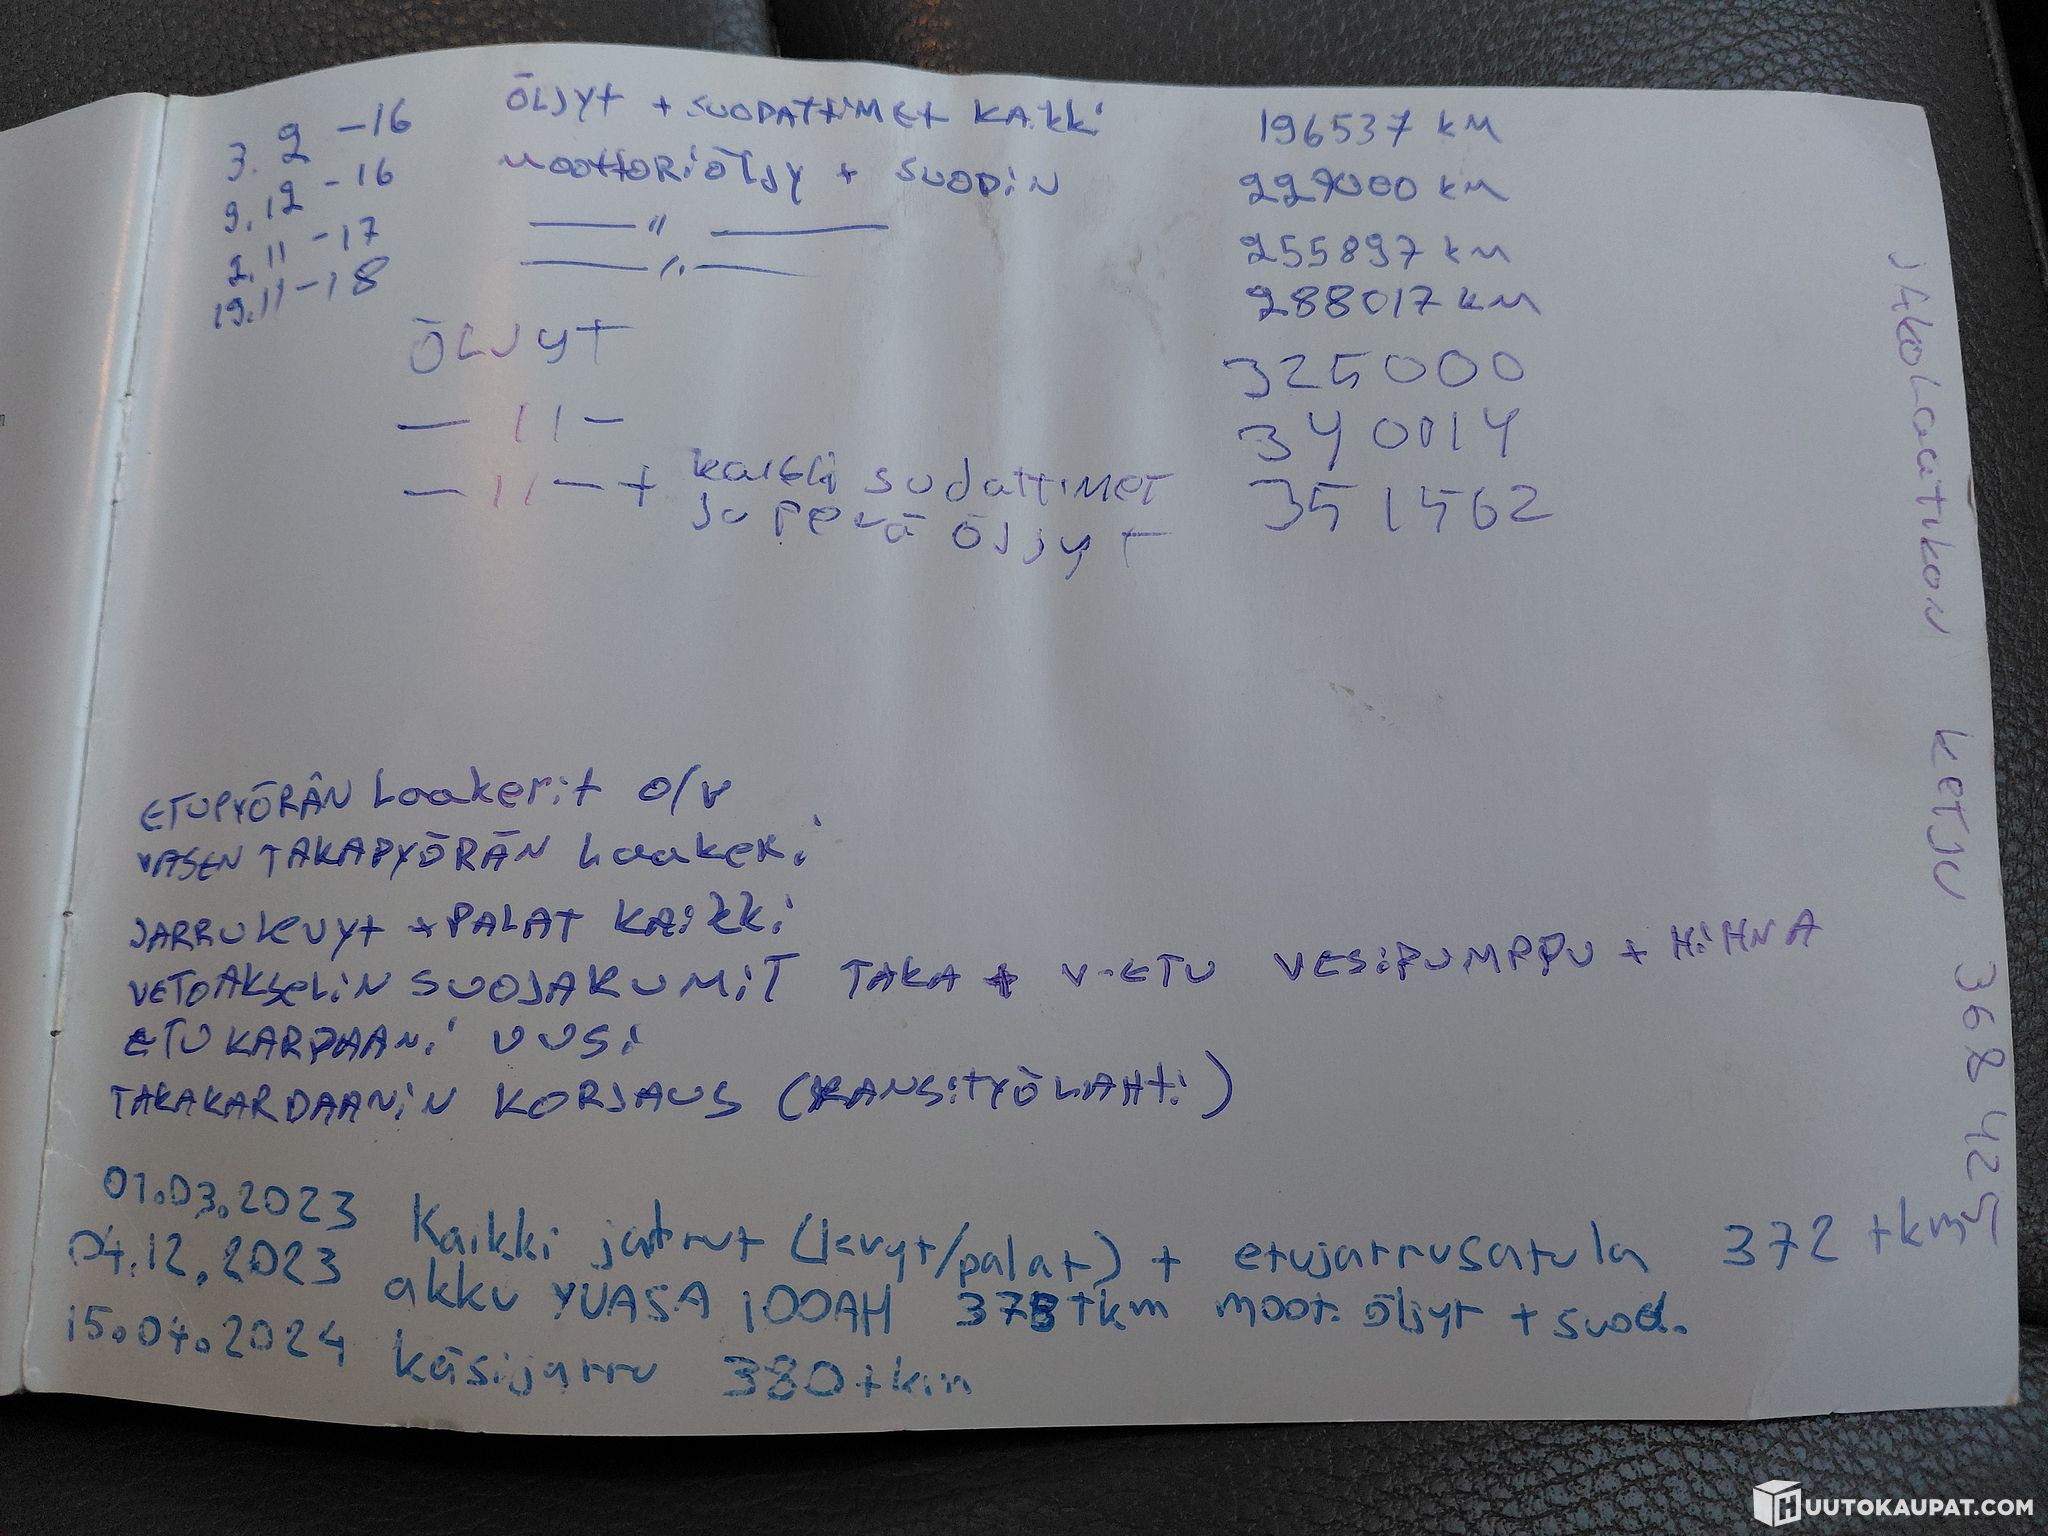 3. 2 -16 ÖLJYT + SUODATTIMET KAIKKI 196537 KM
9.12 -16 MOOTTORIÖLJY + SUODIN 229000 KM
2.11 -17 —— " —— 255897 KM
19.11-18 —— " —— 288017 KM
ÖLJYT 325000
— 11 — 340014
— 11 — + kaikki sudattimet 351562
ja perä öljyt
ETUPYÖRÄN Laakerit o/v
VASEN TAKAPYÖRÄN Laakeri
JARRULEVYT + PALAT KAIKKI
VETOAKSELIN SUOJAKUMIT TAKA + V-ETU VESIPUMPPU + HIHNA
ETUKARDAANI UUSI
TAKAKARDAANIN KORJAUS (KANSITYÖ LAHTI)
01.03.2023 Kaikki jarrut (levyt/palat) + etujarrusatula 372 tkm
04.12.2023 akku YUASA 100AH 378 tkm moot. öljyt + suod.
15.04.2024 käsijarru 380 tkm
JAKOLaatikon KETJU 368 425
HUUTOKAUPAT.COM